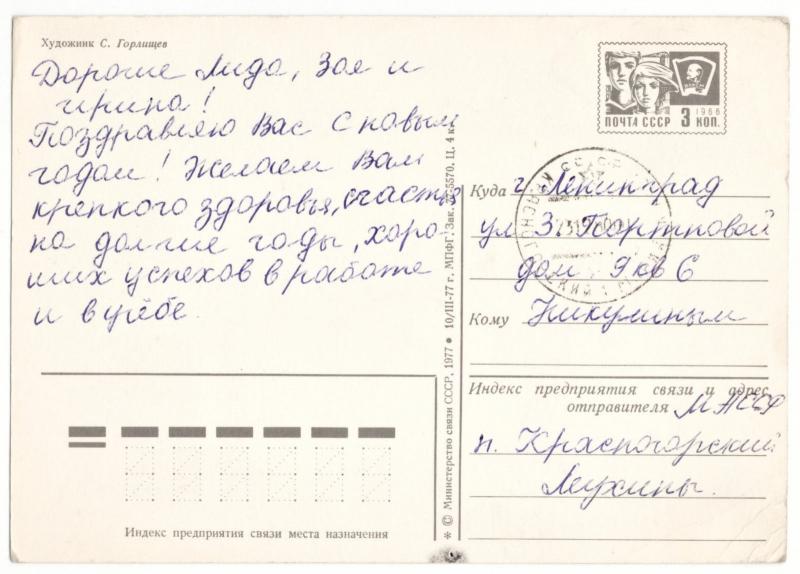 Художник С. Горлищев
Дорогие Лида, Зоя и
Ирина!
Поздравляю Вас с новым
годом! Желаем Вам
крепкого здоровья, счастья
на долгие годы, хоро-
ших успехов в работе
и в учёбе.
ПОЧТА СССР 3 КОП. 1966
Куда г. Ленинград
ул З. Портновой
дом 9 кв 6
Кому Никулиным
Индекс предприятия связи и адрес
отправителя МАССР
п. Красногорский
Мухины.
Индекс предприятия связи места назначения
* © Министерство связи СССР, 1977 ● 10/III-77 г. МПФГ. Зак. 5570. Ц. 4 к.